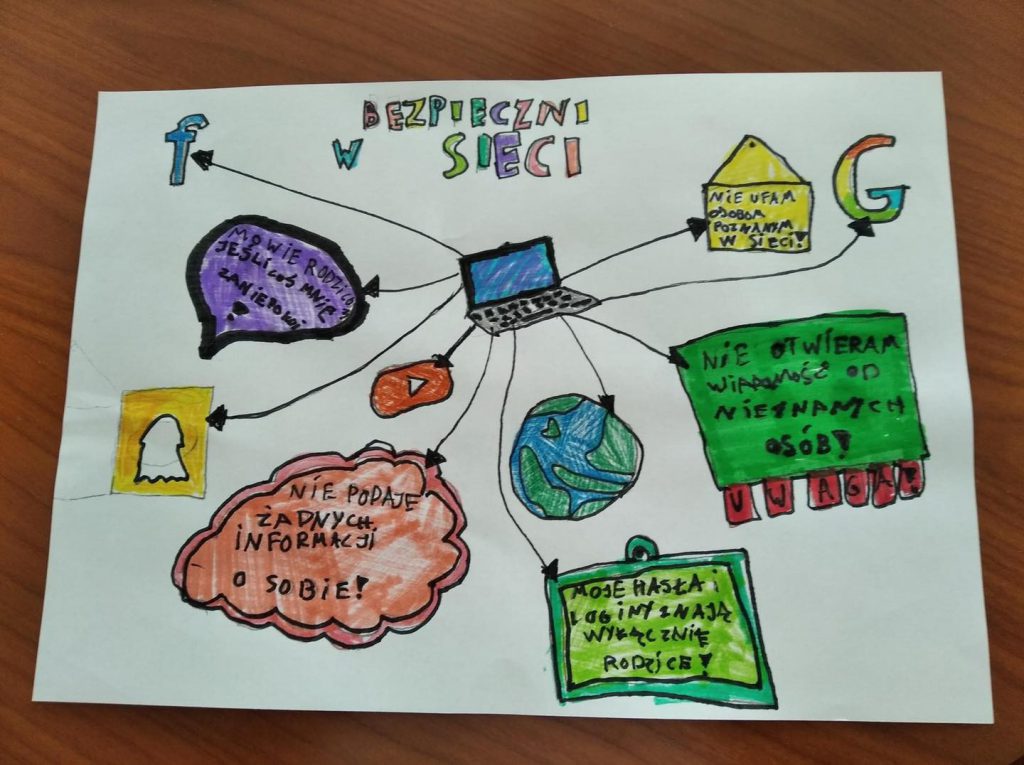 BEZPIECZNI
W SIECI
f
NIE UFAM
OSOBOM
POZNANYM
W SIECI!
G
MOWIE RODZICOM
JEŚLI COŚ MNIE
ZANIEPOKOI
!
NIE OTWIERAM
WIADOMOŚĆ OD
NIEZNANYCH
OSÓB!
UWAGA!
NIE PODAJE
ŻADNYCH
INFORMACJI
O SOBIE!
MOJE HASŁA i
LOGINY ZNAJĄ
WYŁĄCZNIE
RODZICE!